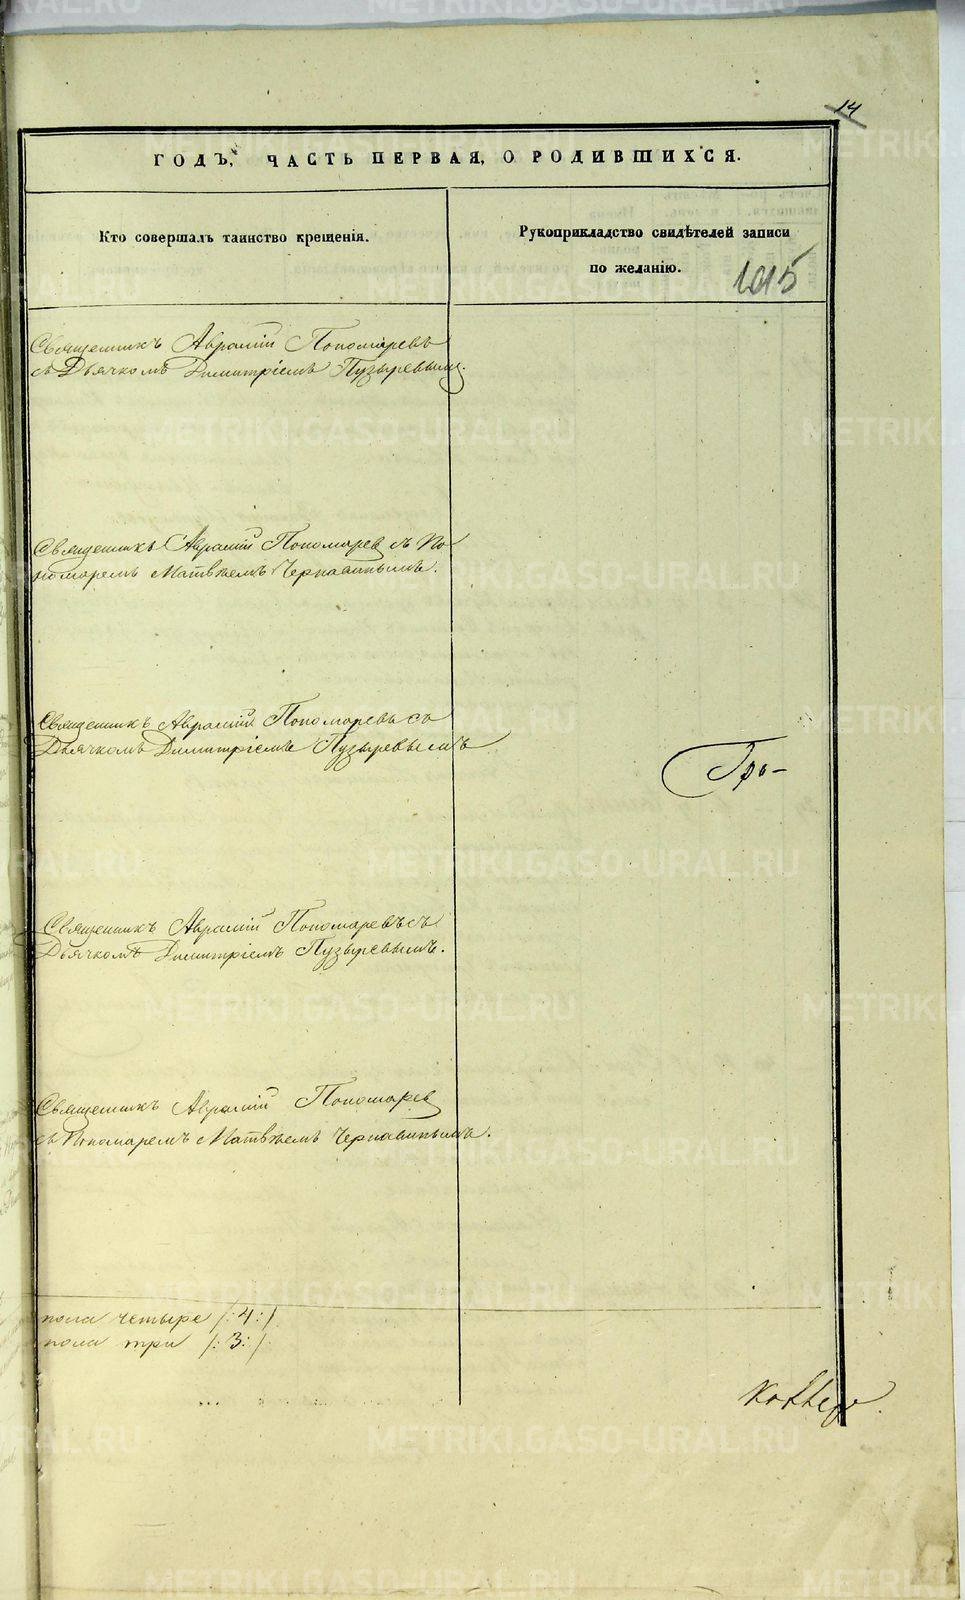 14
ГОДЪ, ЧАСТЬ ПЕРВАЯ, О РОДИВШИХСЯ.
Кто совершалъ таинство крещенія.
Рукоприкладство свидѣтелей записи
по желанію.
1015
Священникъ Аврамій Пономаревъ
съ Дьячкомъ Димитріемъ Пузыревым.
Священникъ Аврамій Пономарев съ По
номаремъ Матвѣемъ Чернавинымъ.
Священникъ Аврамій Пономаревъ съ
Дьячкомъ Димитріемъ Пузыревымъ
Гро-
Священникъ Аврамій Пономаревъ съ
Дьячкомъ Димитріемъ Пузыревымъ.
Священникъ Аврамій Пономарев
съ Пономаремъ Матвѣемъ Чернавинымъ.
пола четыре /:4:/
пола три /:3:/
METRIKI.GASO-URAL.RU